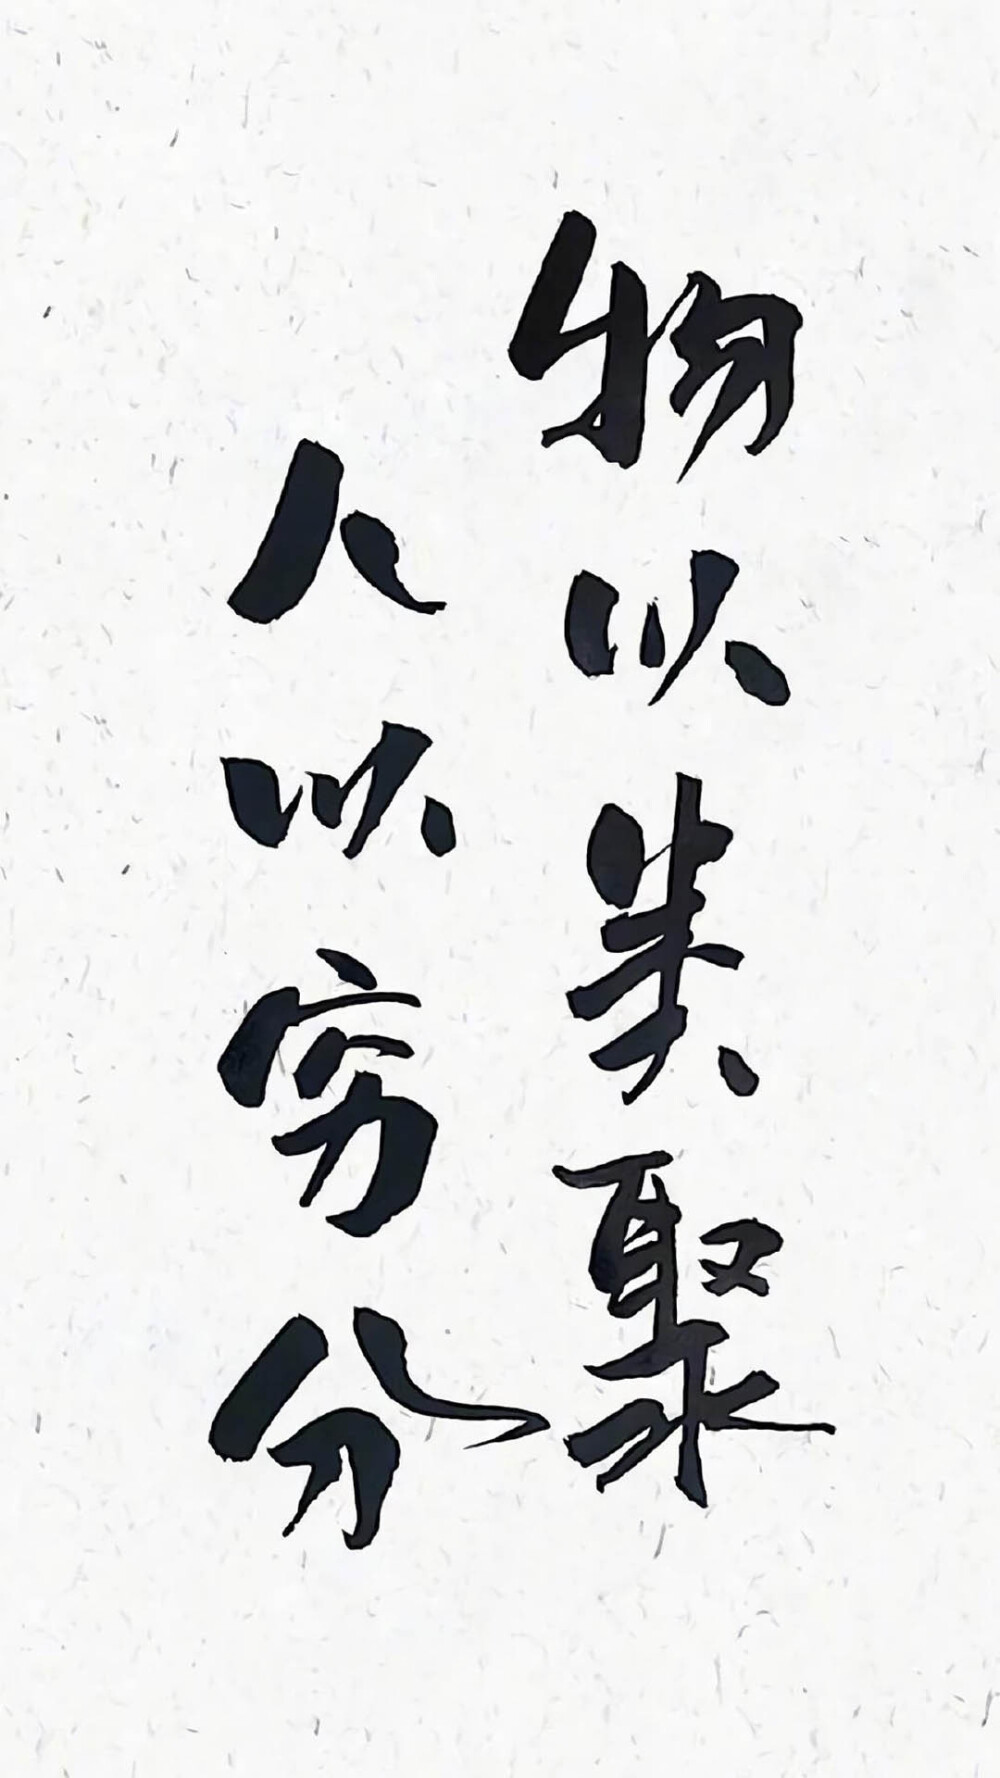 物以类聚
人以穷分